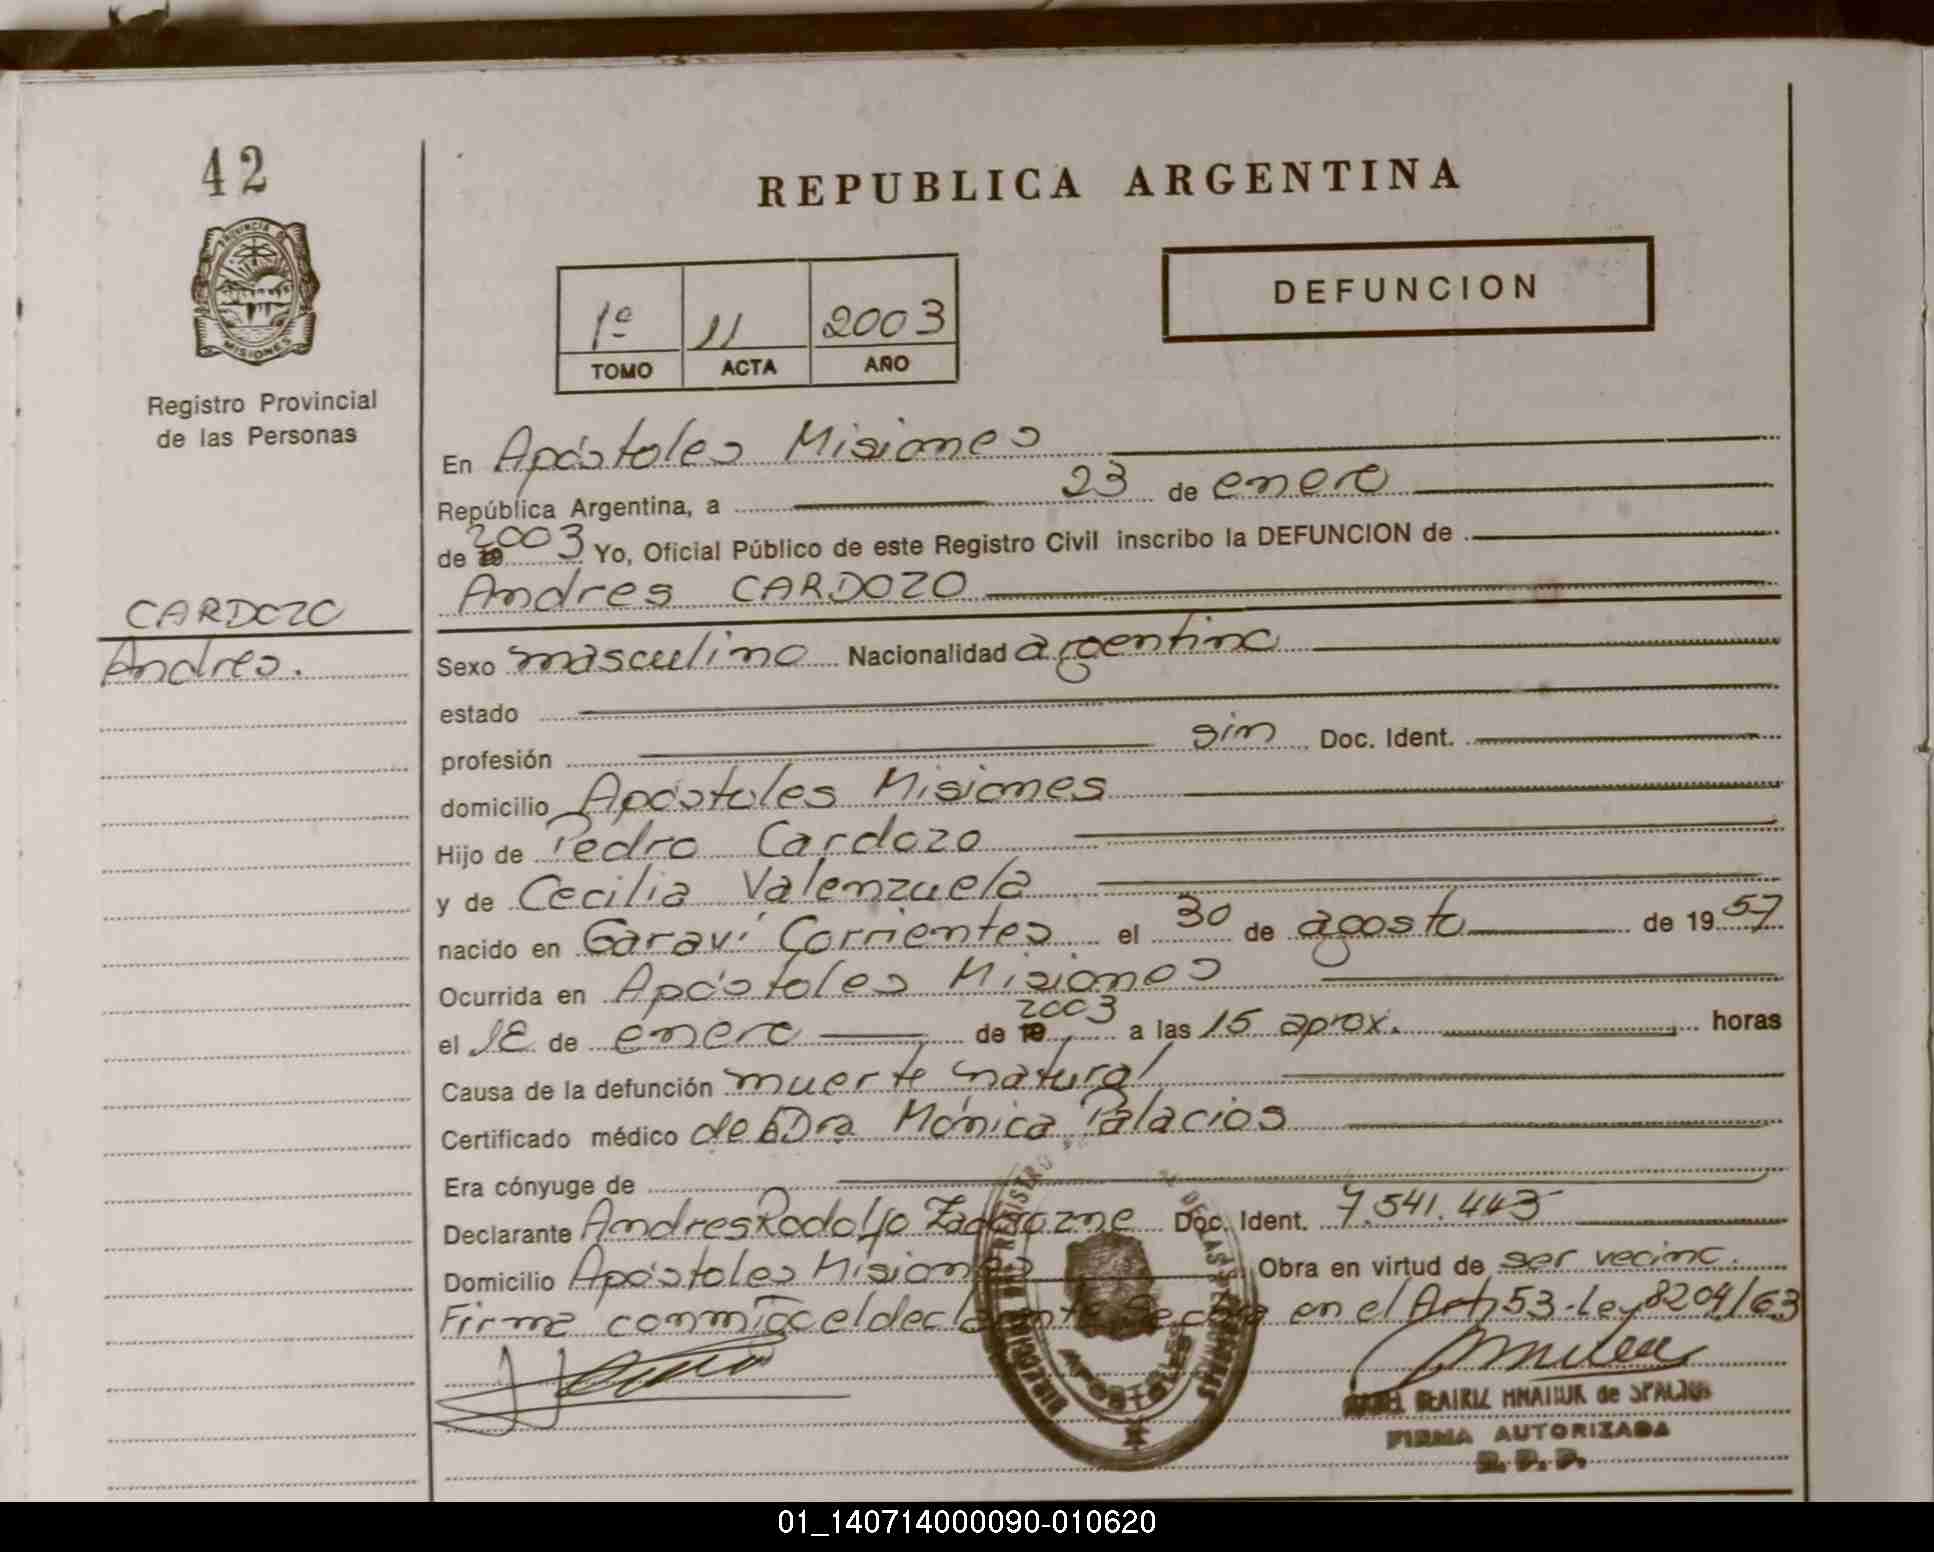 42
REPUBLICA ARGENTINA
PROVINCIA DE
MISIONES
Registro Provincial
de las Personas
1º 11 2003
TOMO ACTA AÑO
DEFUNCION
En Apóstoles Misiones
República Argentina, a 23 de enero
de 19 2003 Yo, Oficial Público de este Registro Civil inscribo la DEFUNCION de
Andres CARDOZO
CARDOZO
Andres.
Sexo masculino Nacionalidad argentino
estado
profesión sin Doc. Ident.
domicilio Apóstoles Misiones
Hijo de Pedro Cardozo
y de Cecilia Valenzuela
nacido en Garaví Corrientes el 30 de agosto de 1957
Ocurrida en Apóstoles Misiones
el de enero de 19 2003 a las 15 aprox. horas
Causa de la defunción muerte natural
Certificado médico de Dra Mónica Palacios
Era cónyuge de
Declarante Andres Rodolfo Doc. Ident. 7.541.443
Domicilio Apóstoles Misiones Obra en virtud de ser vecino.
Firma conmigo el declarante en el Art 53-Ley 8204/63
DIRECCION DEL REGISTRO DE LAS PERSONAS
APOSTOLES
BEATRIZ de
FIRMA AUTORIZADA
R. P. P.
01_140714000090-010620